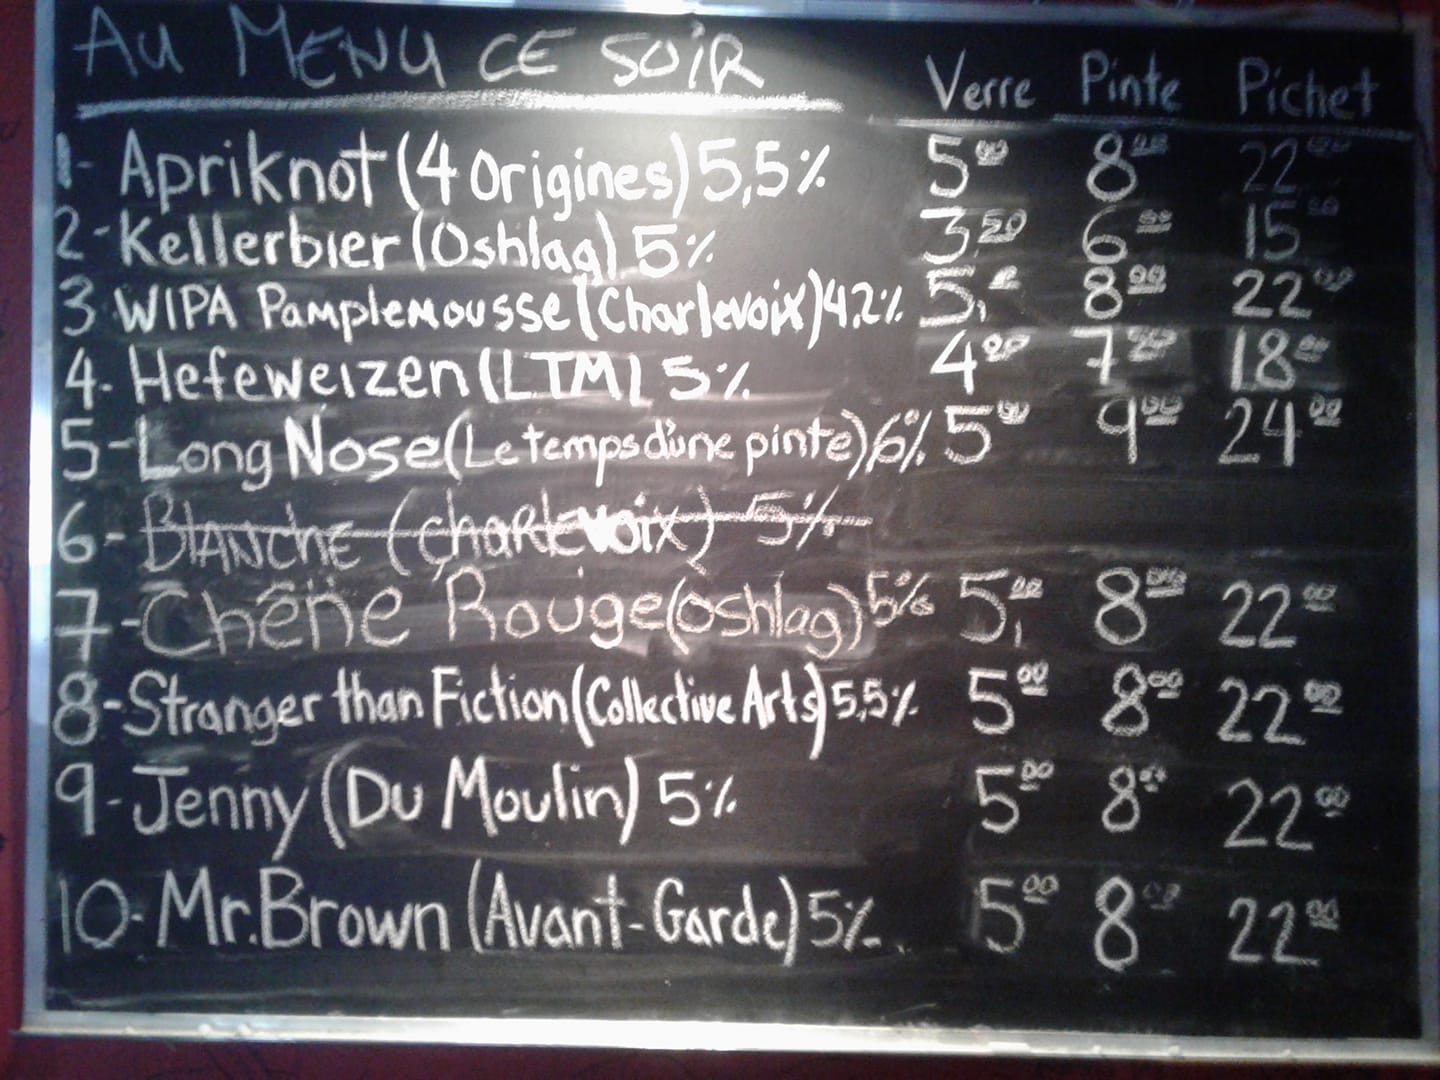 AU MENU CE SOIR Verre Pinte Pichet
1- Apriknot (4 Origines) 5,5% 5.00 8.00 22.00
2- Kellerbier (Oshlag) 5% 3.50 6.00 15.00
3 WIPA Pamplemousse (Charlevoix) 4,2% 5, 8.00 22.00
4- Hefeweizen (LTM) 5% 4.50 7.50 18.00
5- Long Nose (Le temps d'une pinte) 6% 5.00 9.00 24.00
6- Blanche (Charlevoix) 5%
7- Chêne Rouge (Oshlag) 5% 5.00 8.00 22.00
8- Stranger than Fiction (Collective Arts) 5,5% 5.00 8.00 22.00
9- Jenny (Du Moulin) 5% 5.00 8.00 22.00
10- Mr. Brown (Avant-Garde) 5% 5.00 8.00 22.00